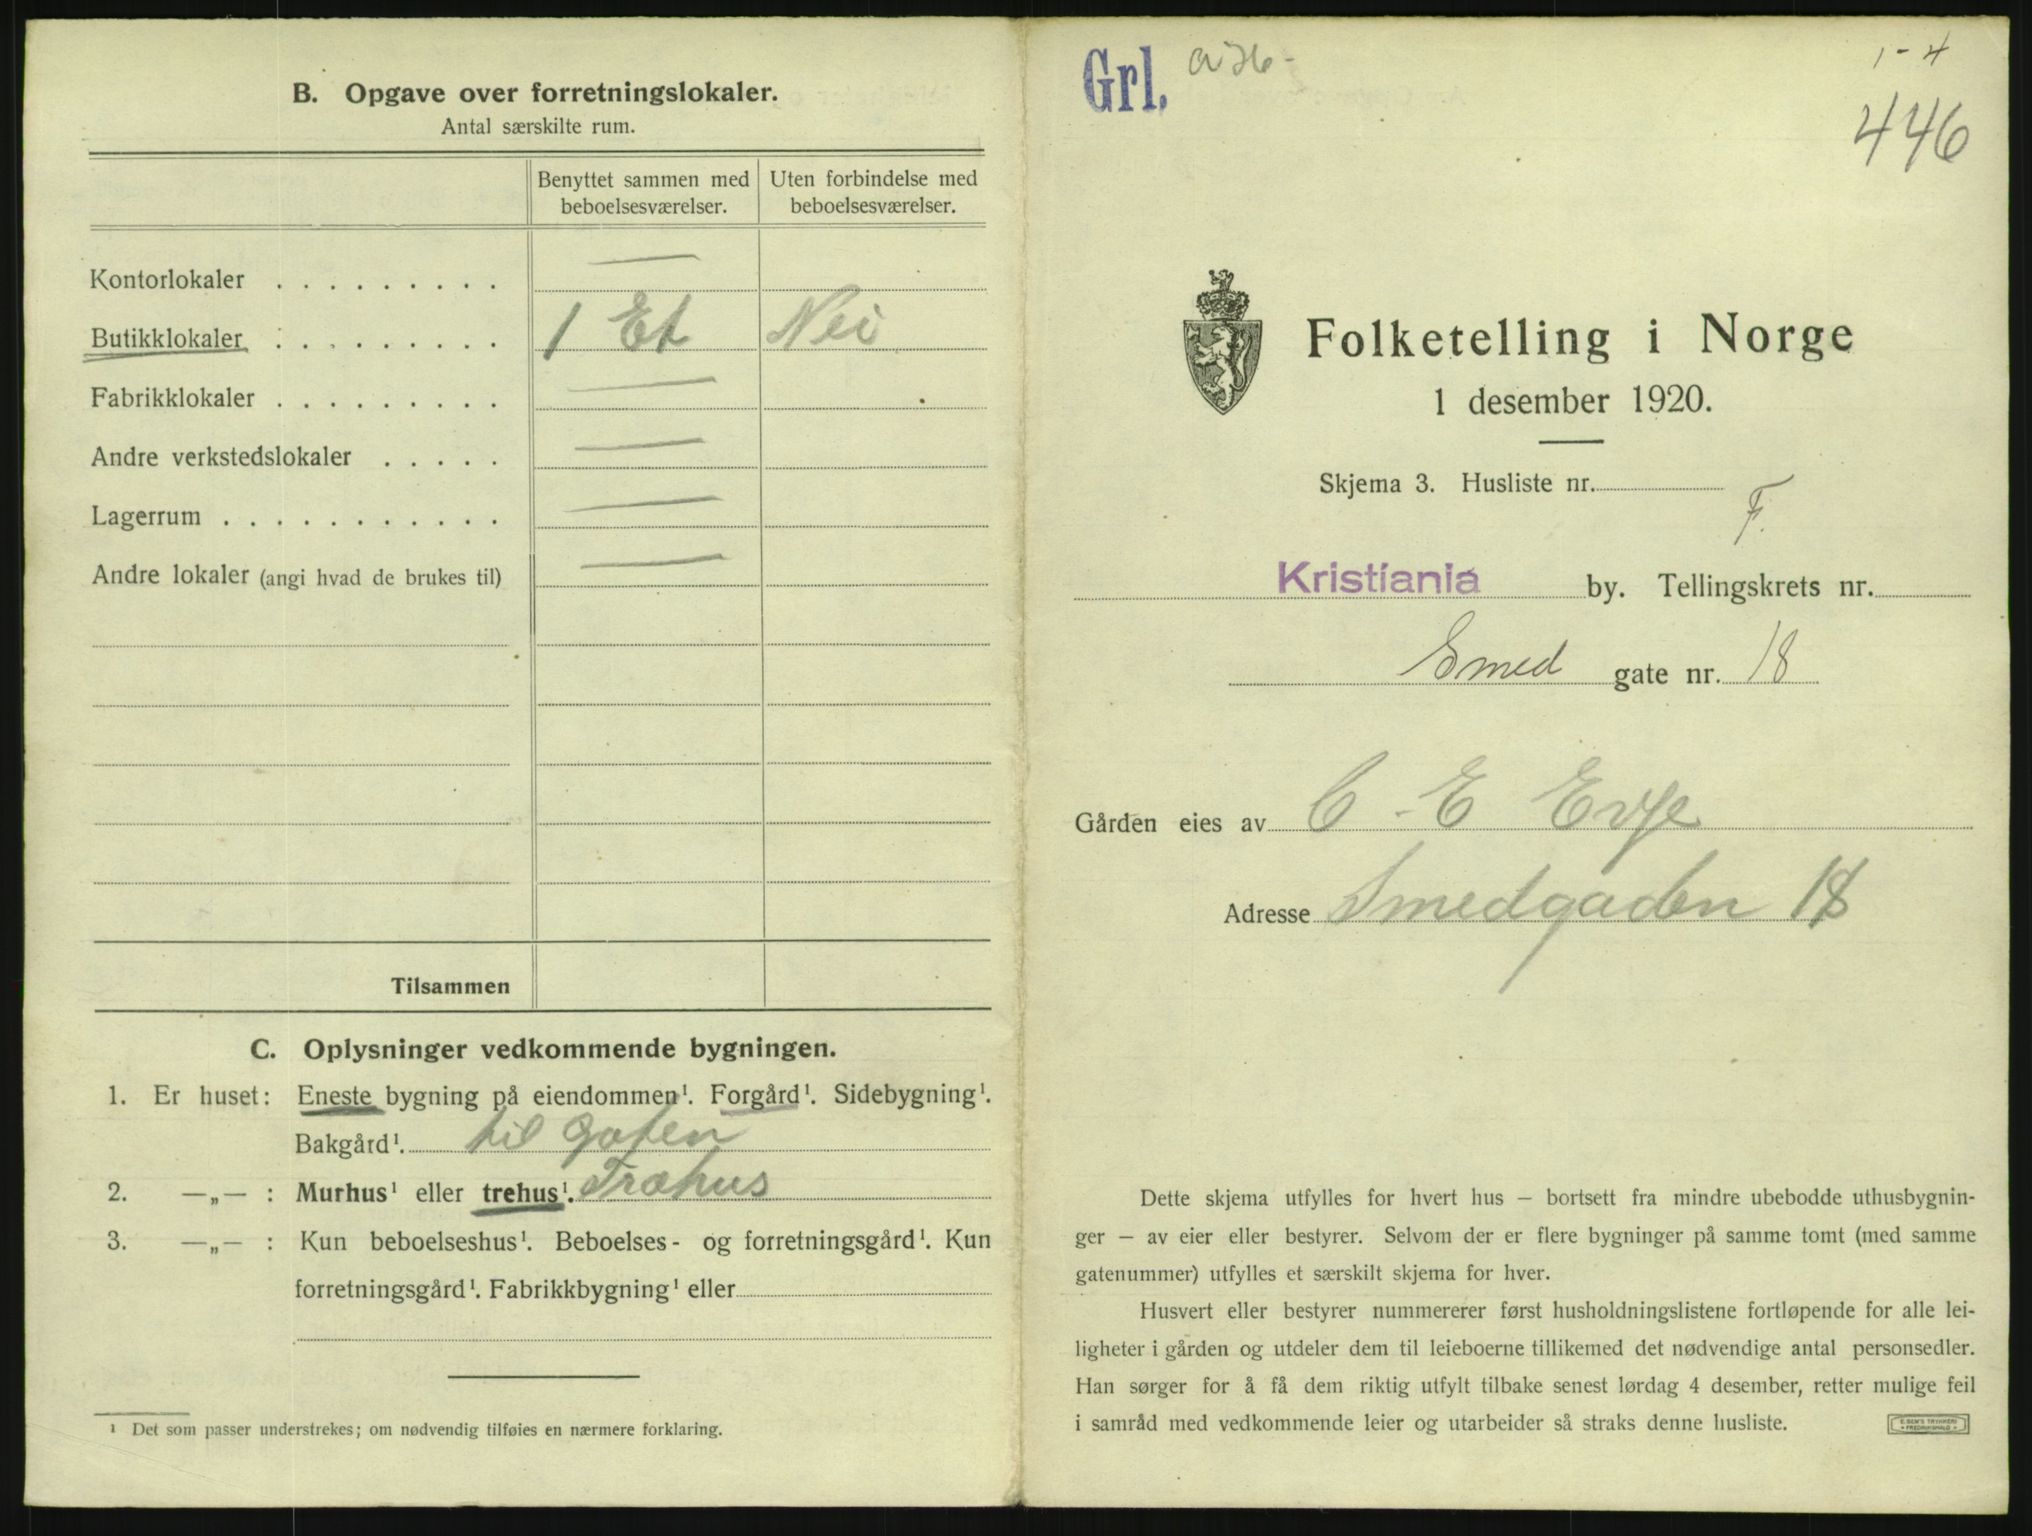 B. Opgave over forretningslokaler.
Antal særskilte rum.
Benyttet sammen med beboelsesværelser.
Uten forbindelse med beboelsesværelser.
Kontorlokaler . . . . . . . . . —
Butikklokaler . . . . . . . . . 1 Et Nei
Fabrikklokaler . . . . . . . . . —
Andre verkstedslokaler . . . . . —
Lagerrum . . . . . . . . . . . —
Andre lokaler (angi hvad de brukes til) —
Tilsammen
C. Oplysninger vedkommende bygningen.
1. Er huset: Eneste bygning på eiendommen¹. Forgård¹. Sidebygning¹.
Bakgård¹. til gaten
2. —„— : Murhus¹ eller trehus¹. Træhus
3. —„— : Kun beboelseshus¹. Beboelses- og forretningsgård¹. Kun
forretningsgård¹. Fabrikkbygning¹ eller
¹ Det som passer understrekes; om nødvendig tilføies en nærmere forklaring.
Grl.
1-4
446
Folketelling i Norge
1 desember 1920.
Skjema 3. Husliste nr.
F.
Kristiania by. Tellingskrets nr.
Smed gate nr. 18
Gården eies av C. E Evje
Adresse Smedgaden 18
Dette skjema utfylles for hvert hus — bortsett fra mindre ubebodde uthusbygnin-
ger — av eier eller bestyrer. Selvom der er flere bygninger på samme tomt (med samme
gatenummer) utfylles et særskilt skjema for hver.
Husvert eller bestyrer nummererer først husholdningslistene fortløpende for alle lei-
ligheter i gården og utdeler dem til leieboerne tillikemed det nødvendige antal personsedler.
Han sørger for å få dem riktig utfylt tilbake senest lørdag 4 desember, retter mulige feil
i samråd med vedkommende leier og utarbeider så straks denne husliste.